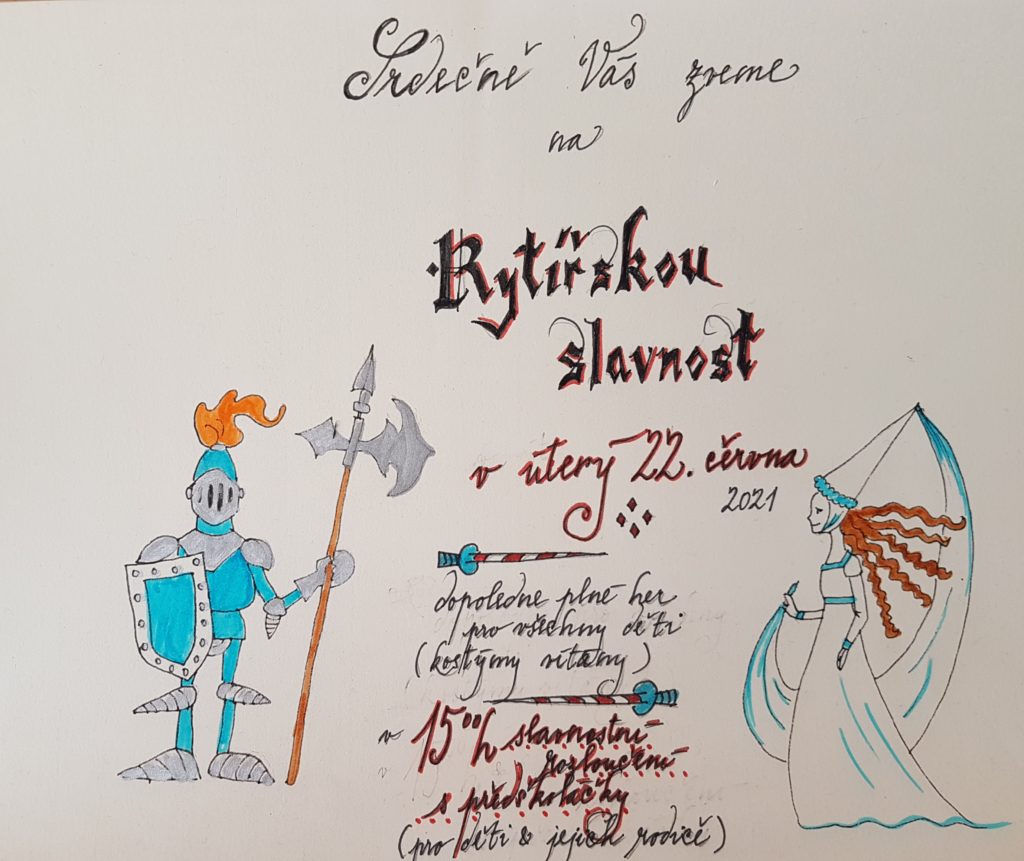 Srdečně Vás zveme
na
Rytířskou
slavnost
v úterý 22. června
2021
dopoledne plné her
pro všechny děti
(kostýmy vítány)
v 15⁰⁰h slavnostní
rozloučení
s předškoláčky
(pro děti & jejich rodiče)